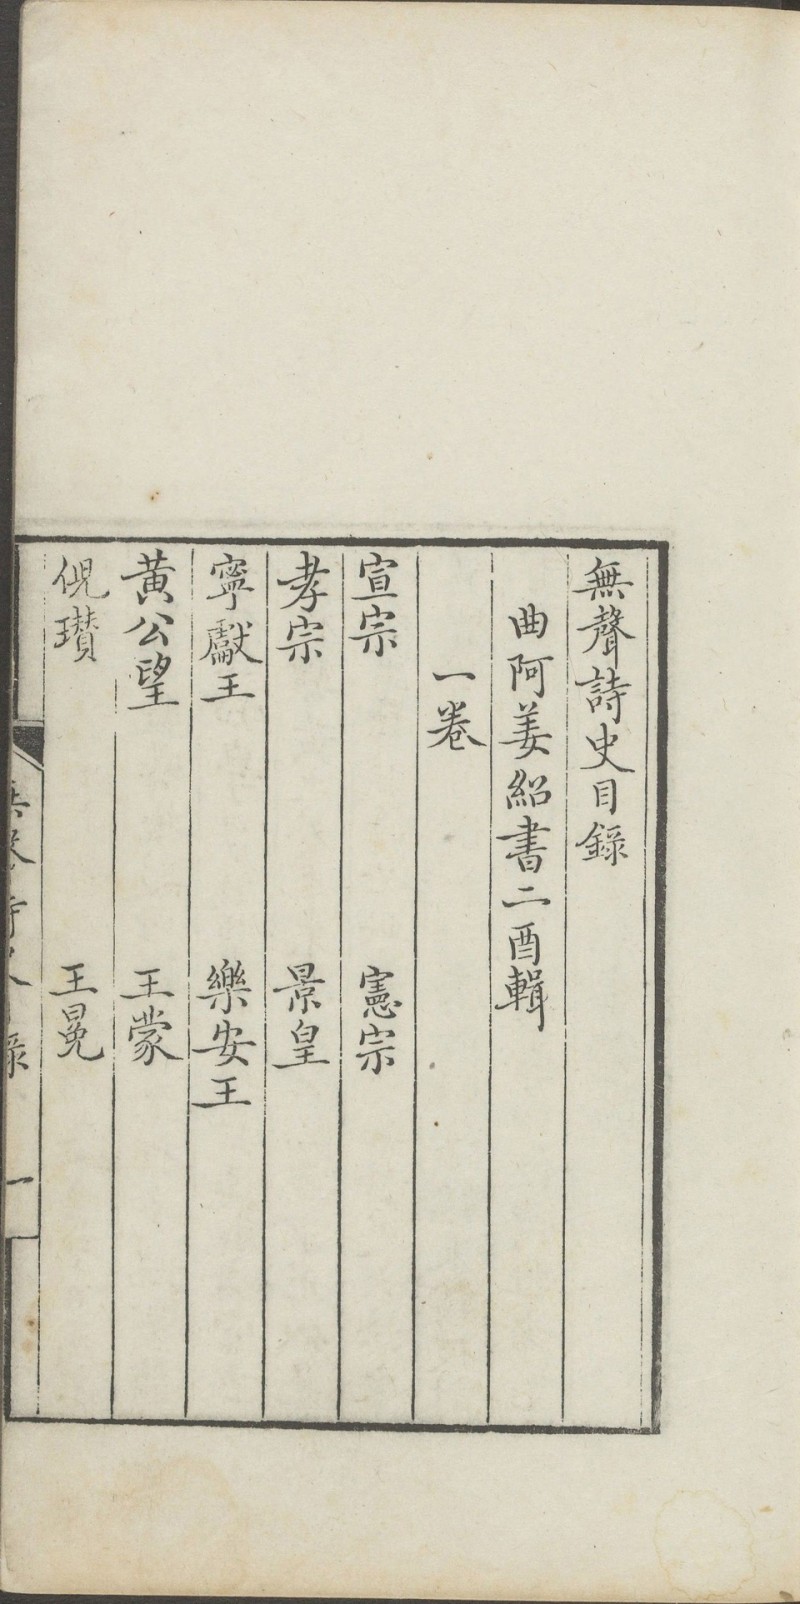 無聲詩史目錄
曲阿姜紹書二酉輯
一卷
宣宗 憲宗
孝宗 景皇
寧獻王 樂安王
黃公望 王蒙
倪瓚 王冕
一